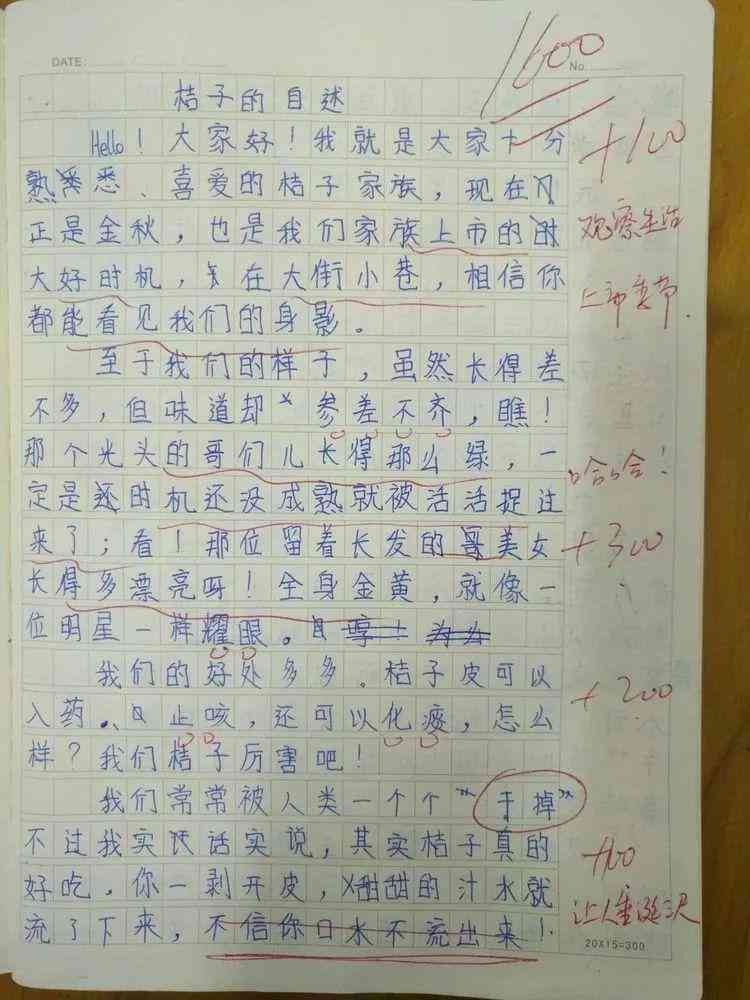 1600
DATE:
No.
桔子的自述
Hello！大家好！我就是大家十分 +100
熟悉、喜爱的桔子家族，现在
正是金秋，也是我们家族上市的 观察生活
大好时机，在大街小巷，相信你 上市季节
都能看见我们的身影。
至于我们的样子，虽然长得差
不多，但味道却参差不齐，瞧！
那个光头的哥们儿长得那么绿，一 哈哈！
定是还时机还没成熟就被活活捉注
来了；看！那位留着长发的美女 +300
长得多漂亮呀！全身金黄，就像一
位明星一样耀眼。
我们的好处多多。桔子皮可以
入药、止咳，还可以化痰，怎么 +200
样？我们桔子厉害吧！
我们常常被人类一个个“干掉”
不过我实话实说，其实桔子真的 +100
好吃，你一剥开皮，甜甜的汁水就
流了下来，不信你口水不流出来！ 让人垂涎三尺
20X15=300